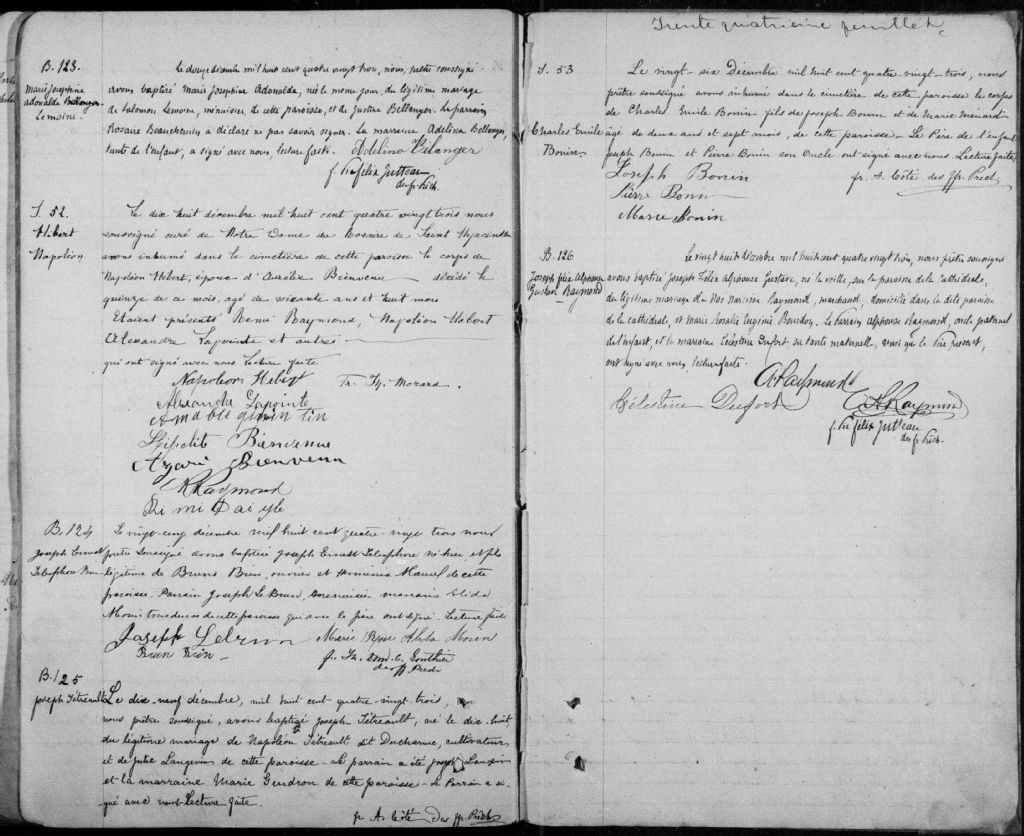 B. 123.
Marie Josephine
Adonalda Bellanger
Lemoine.
Le douze décembre mil huit cent quatre vingt trois, nous, prêtre soussigné
avons baptisé Marie Josephine Adonalda, née le même jour, du légitime mariage
de Salomon Lemoine, menuisier, de cette paroisse, et de Justine Bellanger. Le parrain
Rosaire Beauchemin a déclaré ne pas savoir signer. La marraine Adélina Bellanger,
tante de l'enfant, a signé avec nous, lecture faite. Adelina Bélanger
des fr. Prêch.
S. 52.
Hébert
Napoléon
Le dix huit décembre mil huit cent quatre vingt trois nous
soussigné curé de Notre Dame du Rosaire de Saint Hyacinthe
avons inhumé dans le cimetière de cette paroisse le corps de
Napoléon Hébert, époux d'Aurélie Bienvenu décédé le
quinze de ce mois, agé de soixante ans et huit mois
Etaient présents Rémi Raymond, Napoléon Hébert
Alexandre Lapointe et autres
qui ont signé avec nous Lecture faite
Napoléon Hébert fr. Th. Morard.
Alexandre Lapointe
Amable
Hipolite Bienvenue
Azarie Bienvenu
R Raymond
B. 124
Joseph Ernest
Télesphore
Le vingt-cinq décembre mil huit cent quatre-vingt trois nous
prêtre soussigné avons baptisé Joseph Ernest Télesphore né hier et fils
légitime de Bruno Brien, ouvrier et Herminia de cette
paroisse. Parrain Joseph Le Brun, marraine Alida
Morin tous deux de cette paroisse qui avec le père ont signé. Lecture faite
Joseph Lebrun Marie Rose Alida Morin
fr. Th. Gonthier
des ff. Prêch
B. 125
Joseph Tétreault
Le dix-neuf décembre, mil huit cent quatre-vingt-trois,
nous prêtre soussigné, avons baptizé Joseph Tétreault, né le dix-huit
du légitime mariage de Napoléon Tétreault dit Ducharme, cultivateur,
et de Julie Langevin de cette paroisse - Le parrain a été Joseph Langevin
et la marraine Marie Gendron de cette paroisse - Le Parrain a si-
gné avec nous Lecture faite.
fr. A. Côté des ff. Prêch
Trente quatrième feuillet
S. 53
Charles Emile
Bonin
Le vingt-six Décembre mil huit cent quatre-vingt-trois, nous
prêtre soussigné avons inhumé dans le cimetière de cette paroisse le corps
de Charles Emile Bonin fils de Joseph Bonin et de Marie Ménard
agé de deux ans et sept mois, de cette paroisse - Le Père de l'enfant
Joseph Bonin et Pierre Bonin son Oncle ont signé avec nous Lecture faite,
Joseph Bonin fr. A. Côté des ffr. Prêch
Pierre Bonin
Marie Bonin
B. 126
Joseph Félix Alphonse
Gustave Raymond
Le vingt huit décembre mil huit cent quatre vingt trois, nous prêtre soussigné
avons baptisé Joseph Félix Alphonse Gustave, né la veille, sur la paroisse de la Cathédrale,
du légitime mariage de Noé Narcisse Raymond, marchand, domicilié dans la dite paroisse
de la cathédrale, et Marie Rosalie Eugénie Bourdon. Le Parrain Alphonse Raymond, oncle paternel
de l'enfant, et la marraine Célestine Dufort sa tante maternelle, ainsi que le Père présent,
ont signé avec nous, lecture faite.
A Raymond
Célestine Dufort
Raymond
des fr. Prêch.